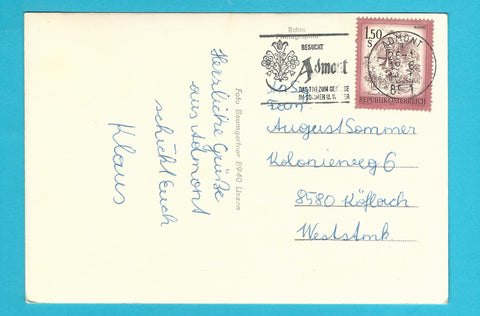 Echte
Photographie
BESUCHT
Admont
DAS TOR ZUM GESÄUSE
IM SOMMER U.
1,50
S
REPUBLIK ÖSTERREICH
ADMONT
Fam.
August Sommer
Kolonieweg 6
8580 Köflach
Weststmk.
Foto Baumgartner 8940 Liezen
Herrliche Grüße
aus Admont
schickt Euch
Klaus